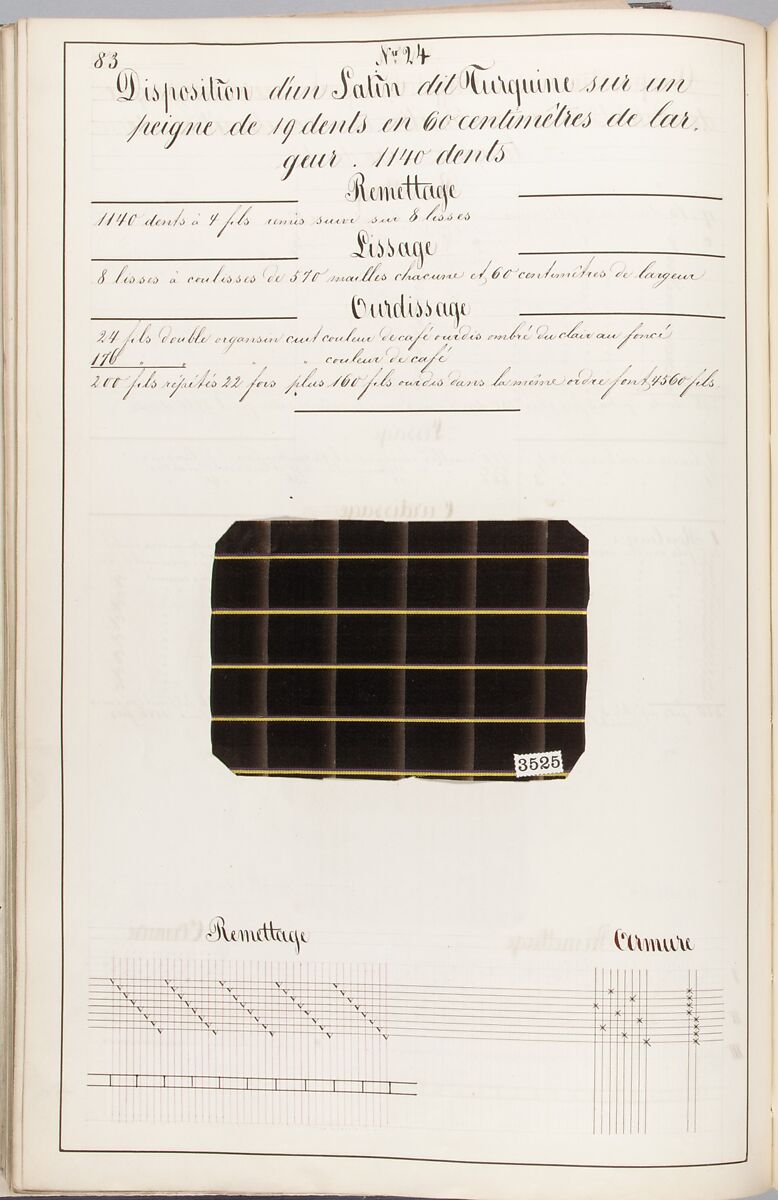 83
Nº 24
Disposition d'un Satin dit Turquine sur un
peigne de 19 dents en 60 centimètres de lar.
geur. 1140 dents
Remettage
1140 dents à 4 fils remis suivi sur 8 lisses
Lissage
8 lisses à coulisses de 570 mailles chacune et 60 centimètres de largeur
Ourdissage
24 fils double organsin cuit couleur de café ourdis ombré du clair au foncé
176 " " " " couleur de café
200 fils répétés 22 fois plus 160 fils ourdis dans la même ordre font 4560 fils.
3525
Remettage
Armure